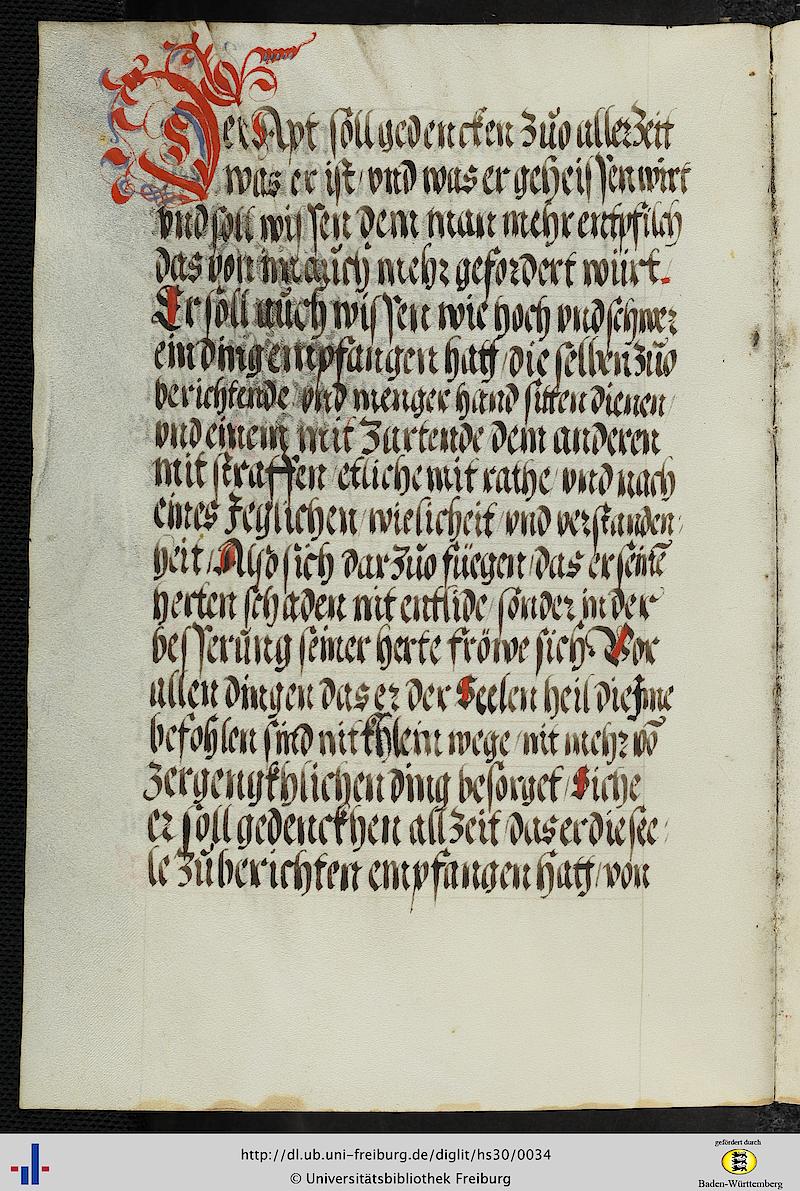 Der Apt soll gedencken zuo aller Zeit
was er ist / vnd was er geheissen wirt
vnd soll wissen dem man mehr entpfilch
das von im auch mehr gefordert würt.
Er soll auch wissen wie hoch vnd schwer
ein ding empfangen hatt / die selben zuo
berichtende / vnd menger hand sitten dienen /
vnd einem mit Zartende dem anderen
mit straffen / etliche mit rathe / vnd nach
eines Jeglichen / wielicheit / vnd verstanden /
heit / Also sich darzuo füegen / das er seinē
herten schaden nit entlide / sonder in der
besserung seiner herte fröwe sich. Vor
allen dingen das er der Seelen heil die Jme
befohlen sind nit khlein wege / nit mehr vō
Zergengkhlichen ding besorget / Siche
er soll gedenckhen all Zeit / das er die see /
le Zů berichten empfangen hatt / von
http://dl.ub.uni-freiburg.de/diglit/hs30/0034
© Universitätsbibliothek Freiburg
gefördert durch
Baden-Württemberg